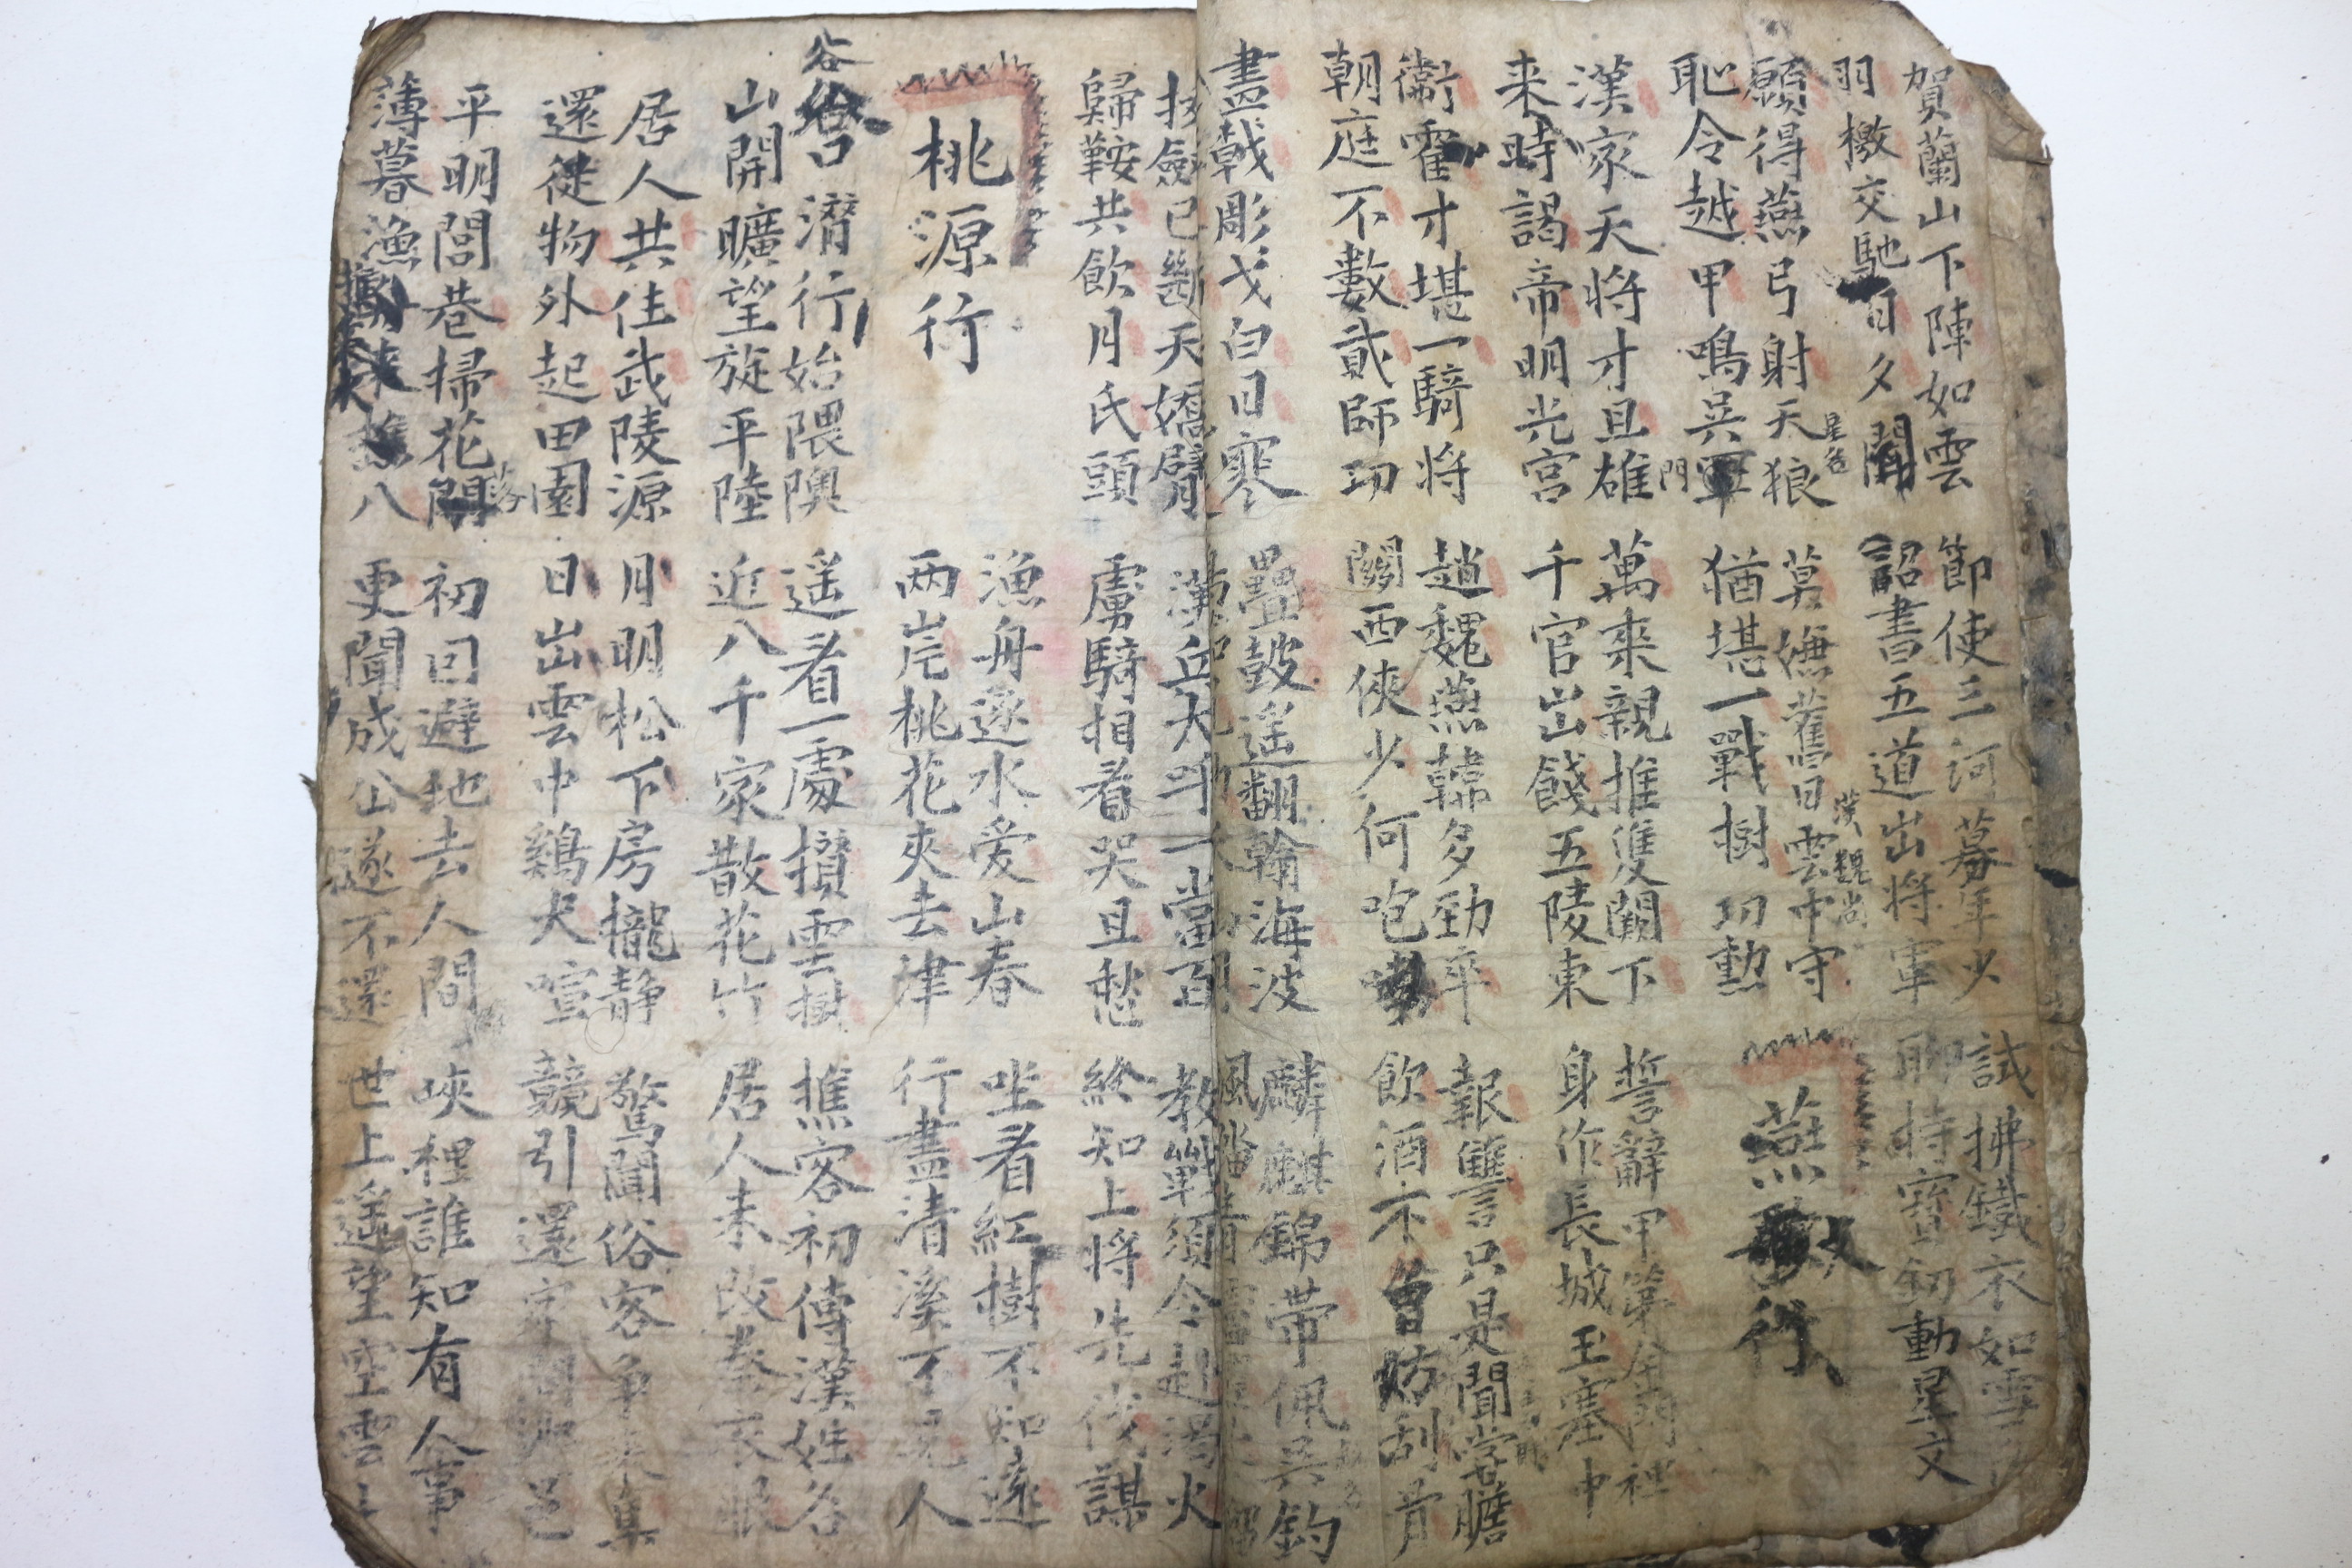 賀蘭山下陣如雲 節使三河募年少 試拂鐵衣如雪
羽檄交馳日夕聞 詔書五道出將軍 聊持寶釰動星文
願得燕弓射天狼 莫嫌舊日雲中守
星名
漢魏尚
恥令越甲鳴吳軍 猶堪一戰樹功勲
門
燕 行
漢家天将才且雄 萬乘親推雙闕下 誓辭甲第金門裡
来時謁帝明光宮 千官出餞五陵東 身作長城玉塞中
衛霍才堪一騎将 趙魏燕韓多勁卒 報讐只是聞甞膽
朝庭不數貳師功 關西俠少何咆 飲酒不曾妨刮骨
畫戟彫戈白日寒 疊鼓遥翻翰海波 麟麒錦帶佩吳鈎
拔劔已斷天嬌臂 漢兵大呼一當百 教戰須令赴湯火
歸鞍共飲月氏頭 虜騎相看哭且愁 終知上将先伐謀
桃源行
漁舟逐水爱山春 坐看紅樹不知遠
两岸桃花夾去津 行盡清溪不見人
谷
谷口潛行始隈隩 遥看一處攢雲樹 樵客初傳漢姓名
山開曠望旋平陸 近八千家散花竹 居人未改秦衣服
居人共住武陵源 月明松下房櫳静 驚聞俗客争来集
還從物外起田園 日出雲中鷄犬喧 競引還家問都邑
平明閭巷掃花開 初因避地去人間 峽裡誰知有人事
薄暮漁樵来八 更聞成仙遂不還 世上遥望空雲山